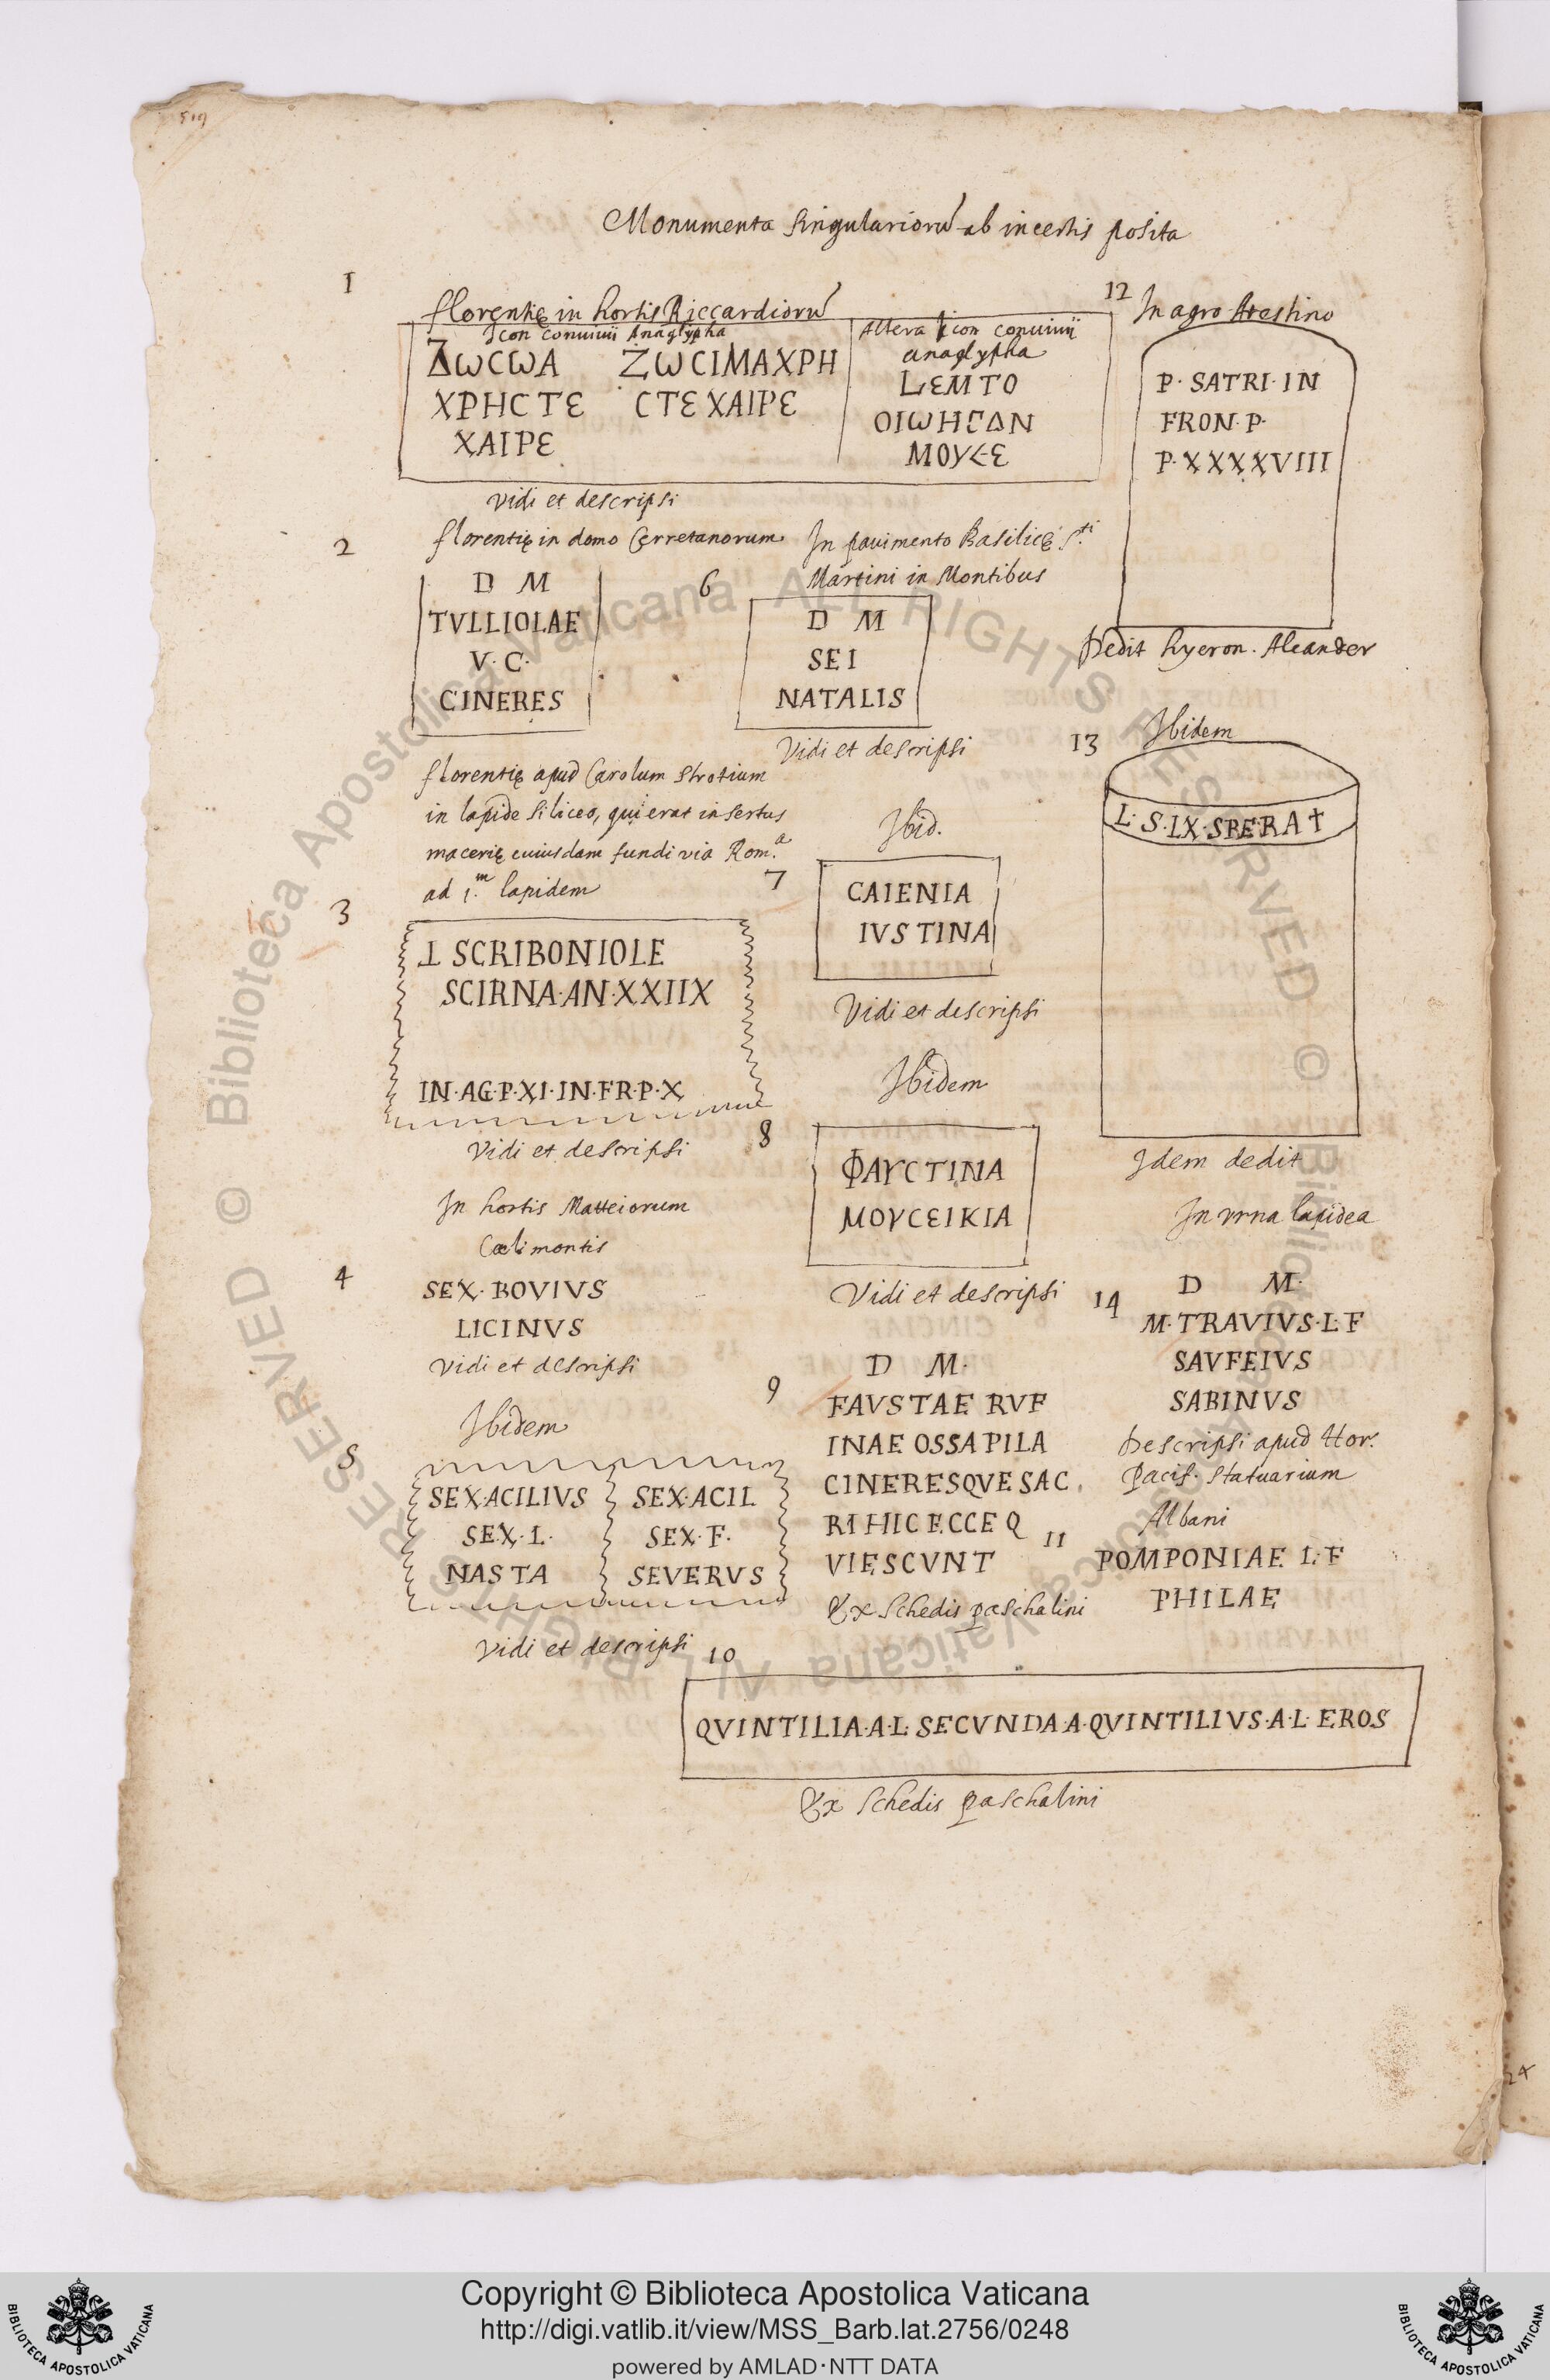 519
Monumenta singularioru͂ ab incertis posita
1
florentię in hortis Riccardioru͂
Icon conuiuii Anaglypha
ΔωCωA ZωCIMAXPH
XPHCTE CTE XAIPE
XAIPE
Altera Icon conuiuii
anaglypha
LEMTO
OIωHΓΔN
MOY<·E
vidi et descripsi
2
florentię in domo Cerretanorum
D M
TVLLIOLAE
V·C·
CINERES
florentię apud Carolum Strotium
in lapide siliceo, qui erat insertus
macerię cuiusdam fundi via Rom.ª
ad 1.m lapidem
3
⊥ SCRIBONIOLE
SCIRNA·AN·XXIIX
IN·AG·P·XI·IN·FR·P·X
Vidi et descripsi
In hortis Matteiorum
Cœli montis
4
SEX·BOVIVS
LICINVS
vidi et descripsi
Ibidem
5
SEX·ACILIVS
SEX·L·
NASTA
SEX·ACIL
SEX·F·
SEVERVS
Vidi et descripsi
In pauimento Basilicę S.ti
Martini in Montibus
6
D M
SEI
NATALIS
Vidi et descripsi
Ibid.
7
CAIENIA
IVSTINA
Vidi et descripsi
Ibidem
8
ΦAYCTINA
MOYCEIKIA
Vidi et descripsi
9
D M·
FAVSTAE RVF
INAE OSSA PILA
CINERESQVE SAC
RI HIC ECCE Q
VIESCVNT
Ex Schedis paschalini
10
QVINTILIA·A·L·SECVNDA·A·QVINTILIVS·A·L·EROS
Ex Schedis paschalini
12
In agro Atestino
P·SATRI·IN
FRON·P·
P·XXXXVIII
Dedit hyeron. Aleander
13
Ibidem
L·S·LX·SPERAT
Idem dedit
In vrna lapidea
14
D M·
M·TRAVIVS·L·F
SAVFEIVS
SABINVS
Descripsi apud Hor.
pacif. statuarium
Albani
11
POMPONIAE L·F
PHILAE
24
© Biblioteca Apostolica Vaticana ALL RIGHTS RESERVED © Biblioteca Apostolica Vaticana ALL RIGHTS RESERVED
BIBLIOTECA APOSTOLICA VATICANA
Copyright © Biblioteca Apostolica Vaticana
http://digi.vatlib.it/view/MSS_Barb.lat.2756/0248
powered by AMLAD·NTT DATA
BIBLIOTECA APOSTOLICA VATICANA